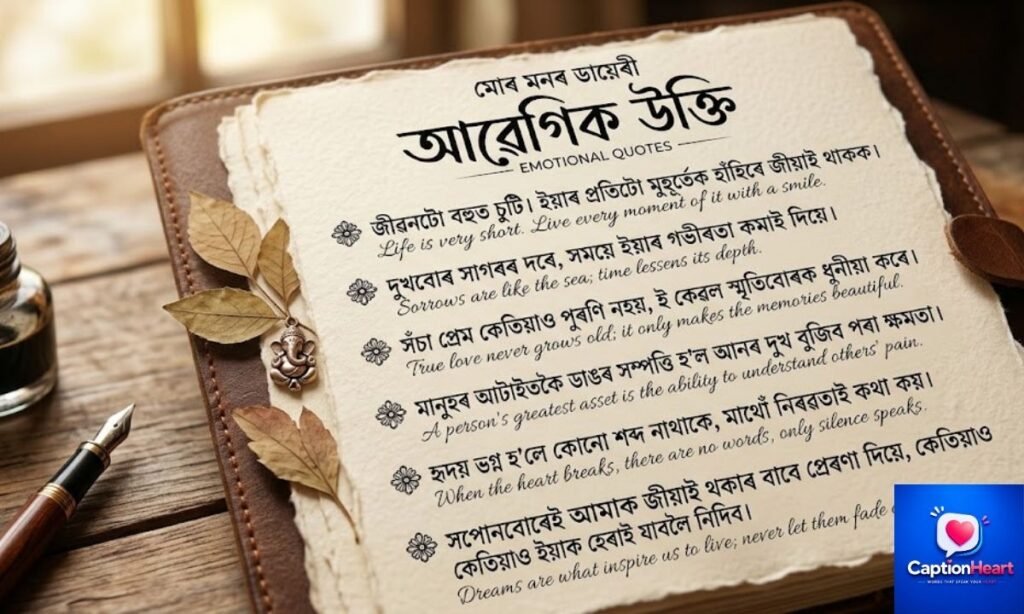 মোৰ মনৰ ডায়েৰী
আৱেগিক উক্তি
EMOTIONAL QUOTES
জীৱনটো বহুত চুটি। ইয়াৰ প্ৰতিটো মুহূৰ্তেক হাঁহিৰে জীয়াই থাকক।
Life is very short. Live every moment of it with a smile.
দুখবোৰ সাগৰৰ দৰে, সময়ে ইয়াৰ গভীৰতা কমাই দিয়ে।
Sorrows are like the sea; time lessens its depth.
সঁচা প্ৰেম কেতিয়াও পুৰণি নহয়, ই কেৱল স্মৃতিবোৰক ধুনীয়া কৰে।
True love never grows old; it only makes the memories beautiful.
মানুহৰ আটাইতকৈ ডাঙৰ সম্পত্তি হ'ল আনৰ দুখ বুজিব পৰা ক্ষমতা।
A person's greatest asset is the ability to understand others' pain.
হৃদয় ভগ্ন হ'লে কোনো শব্দ নাথাকে, মাথোঁ নিৰৱতাই কথা কয়।
When the heart breaks, there are no words, only silence speaks.
সপোনবোৰেই আমাক জীয়াই থকাৰ বাবে প্ৰেৰণা দিয়ে, কেতিয়াও
কেতিয়াও ইয়াক হেৰাই যাবলৈ নিদিব।
Dreams are what inspire us to live; never let them fade
CaptionHeart
WORDS THAT SPEAK YOUR HEART